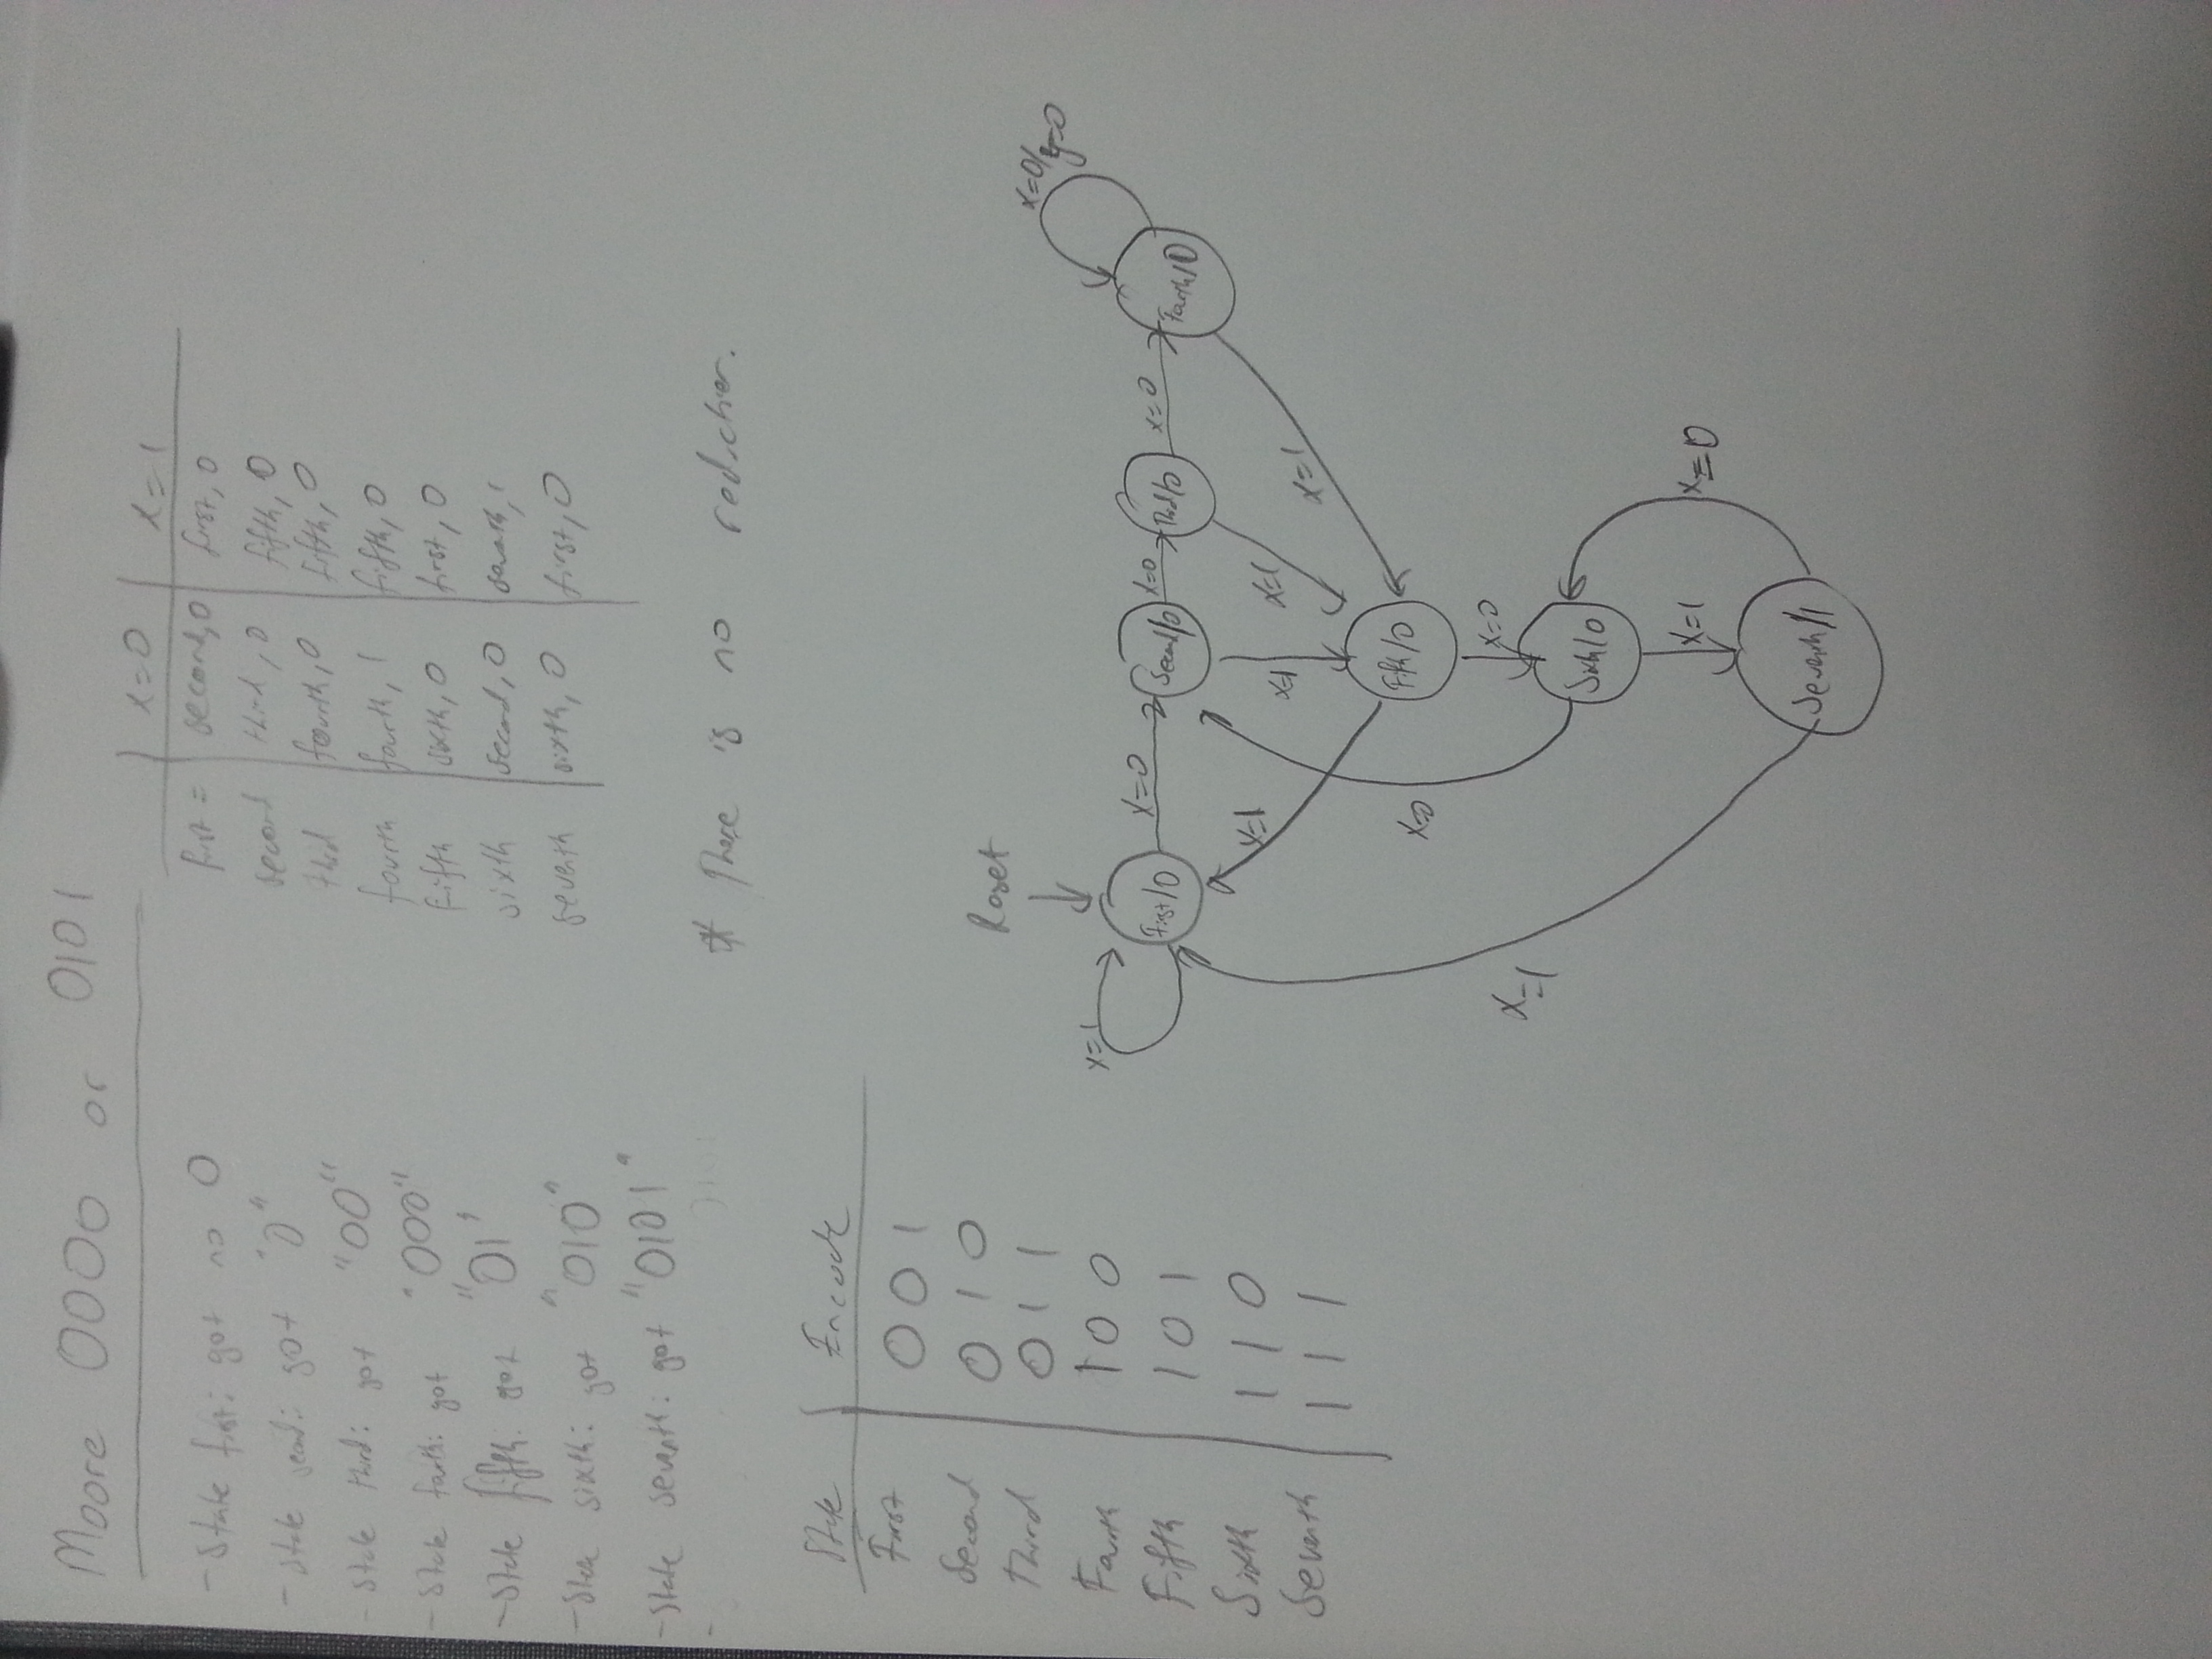 Moore 0000 or 0101
- State first: got no 0
- State second: got "0"
- State third: got "00"
- State fourth: got "000"
- State fifth: got "01"
- State sixth: got "010"
- State seventh: got "0101"
x=0 x=1
first = second, 0 first, 0
second third, 0 fifth, 0
third fourth, 0 fifth, 0
fourth fourth, 1 fifth, 0
fifth sixth, 0 first, 0
sixth second, 0 seventh, 1
seventh sixth, 0 first, 0
* There is no reduction.
State Encode
First 001
Second 010
Third 011
Fourth 100
Fifth 101
Sixth 110
Seventh 111
Reset
x=0/y=0
x=1
First/0 x=0 Second/0 x=0 Third/0 x=0 Fourth/0
x=1 x=1 x=1 x=1
Fifth/0
x=0
x=0
x=1
Sixth/0
x=1 x=0
Seventh/1